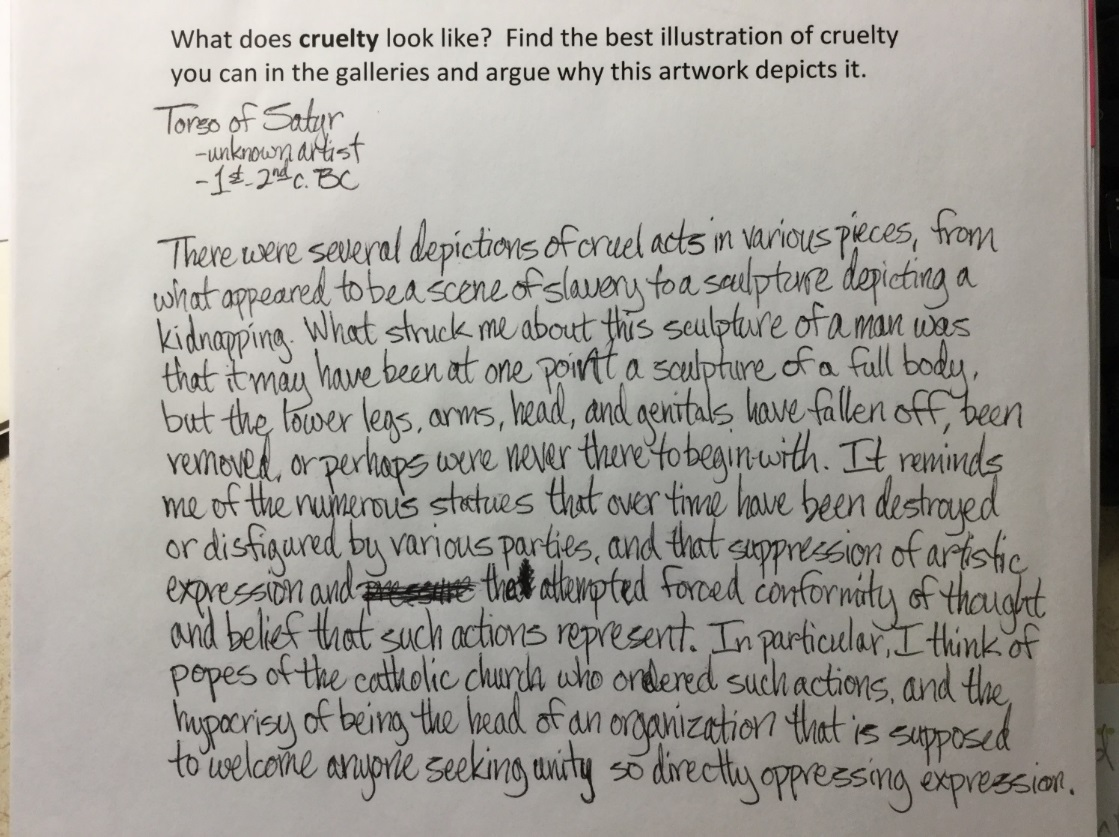 What does cruelty look like? Find the best illustration of cruelty
you can in the galleries and argue why this artwork depicts it.
Torso of Satyr
-unknown artist
-1st-2nd c. BC
There were several depictions of cruel acts in various pieces, from
what appeared to be a scene of slavery to a sculpture depicting a
kidnapping. What struck me about this sculpture of a man was
that it may have been at one point a sculpture of a full body,
but the lower legs, arms, head, and genitals have fallen off, been
removed, or perhaps were never there to begin with. It reminds
me of the numerous statues that over time have been destroyed
or disfigured by various parties, and that suppression of artistic
expression and that attempted forced conformity of thought
and belief that such actions represent. In particular, I think of
popes of the catholic church who ordered such actions, and the
hypocrisy of being the head of an organization that is supposed
to welcome anyone seeking unity so directly oppressing expression.